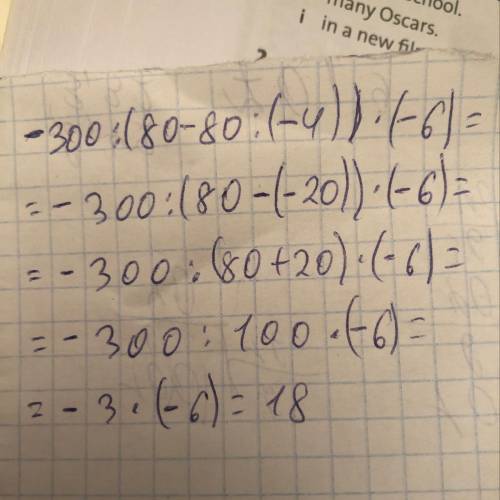 chool.
many Oscars.
i in a new fil
-300:(80-80:(-4))·(-6)=
=-300:(80-(-20))·(-6)=
=-300:(80+20)·(-6)=
=-300:100·(-6)=
=-3·(-6)=18